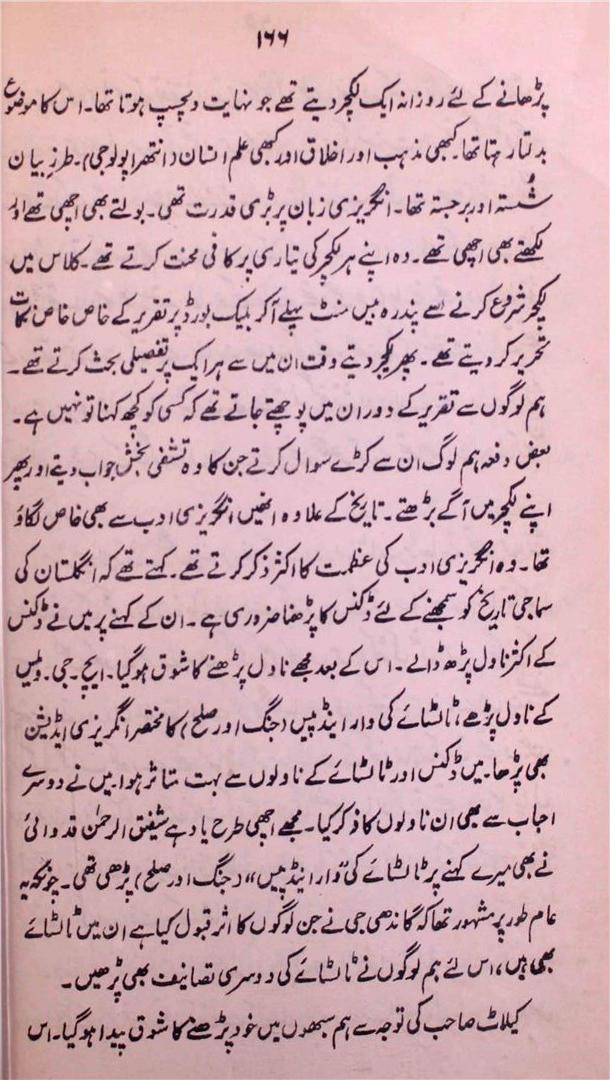 ۱۶۶
پڑھانے کے لئے روزانہ ایک لکچر دیتے تھے جو نہایت دلچسپ ہوتا تھا۔ اس کا موضوع
بدلتا رہتا تھا۔ کبھی مذہب اور اخلاق اور کبھی علم انسان (انتھراپولوجی)۔ طرزِ بیان
شُستہ اور برجستہ تھا۔ انگریزی زبان پر بڑی قدرت تھی۔ بولتے بھی اچھی تھے اور
لکھتے بھی اچھی تھے۔ وہ اپنے ہر لکچر کی تیاری پر کافی محنت کرتے تھے۔ کلاس میں
لکچر شروع کرنے سے پندرہ بیس منٹ پہلے آکر بلیک بورڈ پر تقریر کے خاص خاص نکات
تحریر کر دیتے تھے۔ پھر لکچر دیتے وقت ان میں سے ہر ایک پر تفصیلی بحث کرتے تھے۔
ہم لوگوں سے تقریر کے دوران میں پوچھتے جاتے تھے کہ کسی کو کچھ کہنا تو نہیں ہے۔
بعض دفعہ ہم لوگ ان سے کڑے سوال کرتے جن کا وہ تشفی بخش جواب دیتے اور پھر
اپنے لکچر میں آگے بڑھتے۔ تاریخ کے علاوہ انھیں انگریزی ادب سے بھی خاص لگاؤ
تھا۔ وہ انگریزی ادب کی عظمت کا اکثر ذکر کرتے تھے۔ کہتے تھے کہ انگلستان کی
سماجی تاریخ کو سمجھنے کے لئے ڈکنس کا پڑھنا ضروری ہے۔ ان کے کہنے پر میں نے ڈکنس
کے اکثر ناول پڑھ ڈالے۔ اس کے بعد مجھے ناول پڑھنے کا شوق ہوگیا۔ ایچ۔ جی۔ ویلس
کے ناول پڑھے، ٹالسٹائے کی وار اینڈ پیس (جنگ اور صلح) کا مختصر انگریزی ایڈیشن
بھی پڑھا۔ میں ڈکنس اور ٹالسٹائے کے ناولوں سے بہت متاثر ہوا۔ میں نے دوسرے
احباب سے بھی ان ناولوں کا ذکر کیا۔ مجھے اچھی طرح یاد ہے شفیق الرحمٰن قدوائی
نے بھی میرے کہنے پر ٹالسٹائے کی "وار اینڈ پیس" (جنگ اور صلح) پڑھی تھی۔ چونکہ یہ
عام طور پر مشہور تھا کہ گاندھی جی نے جن لوگوں کا اثر قبول کیا ہے ان میں ٹالسٹائے
بھی ہیں، اس لئے ہم لوگوں نے ٹالسٹائے کی دوسری تصانیف بھی پڑھیں۔
کیلاٹ صاحب کی توجہ سے ہم سبھوں میں خود پڑھنے کا شوق پیدا ہوگیا۔ اس